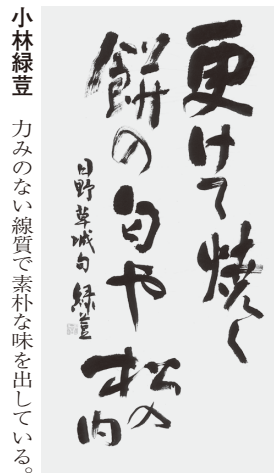 更けて焼く
餅の匂や松の内
日野草城句 緑荳
小林緑荳 力みのない線質で素朴な味を出している。